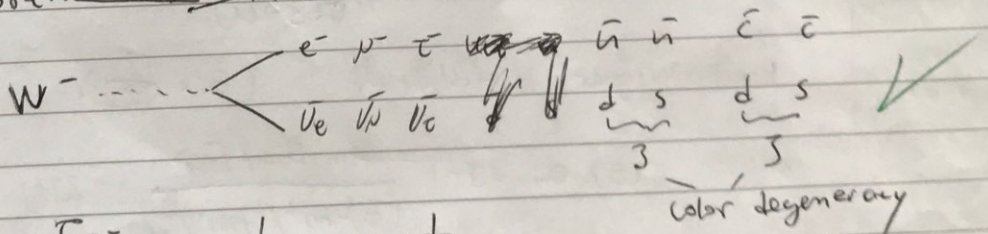 e⁻ μ⁻ τ⁻ ū ū c̄ c̄
W⁻
ν̄e ν̄μ ν̄τ d s d s
3 3
color degeneracy